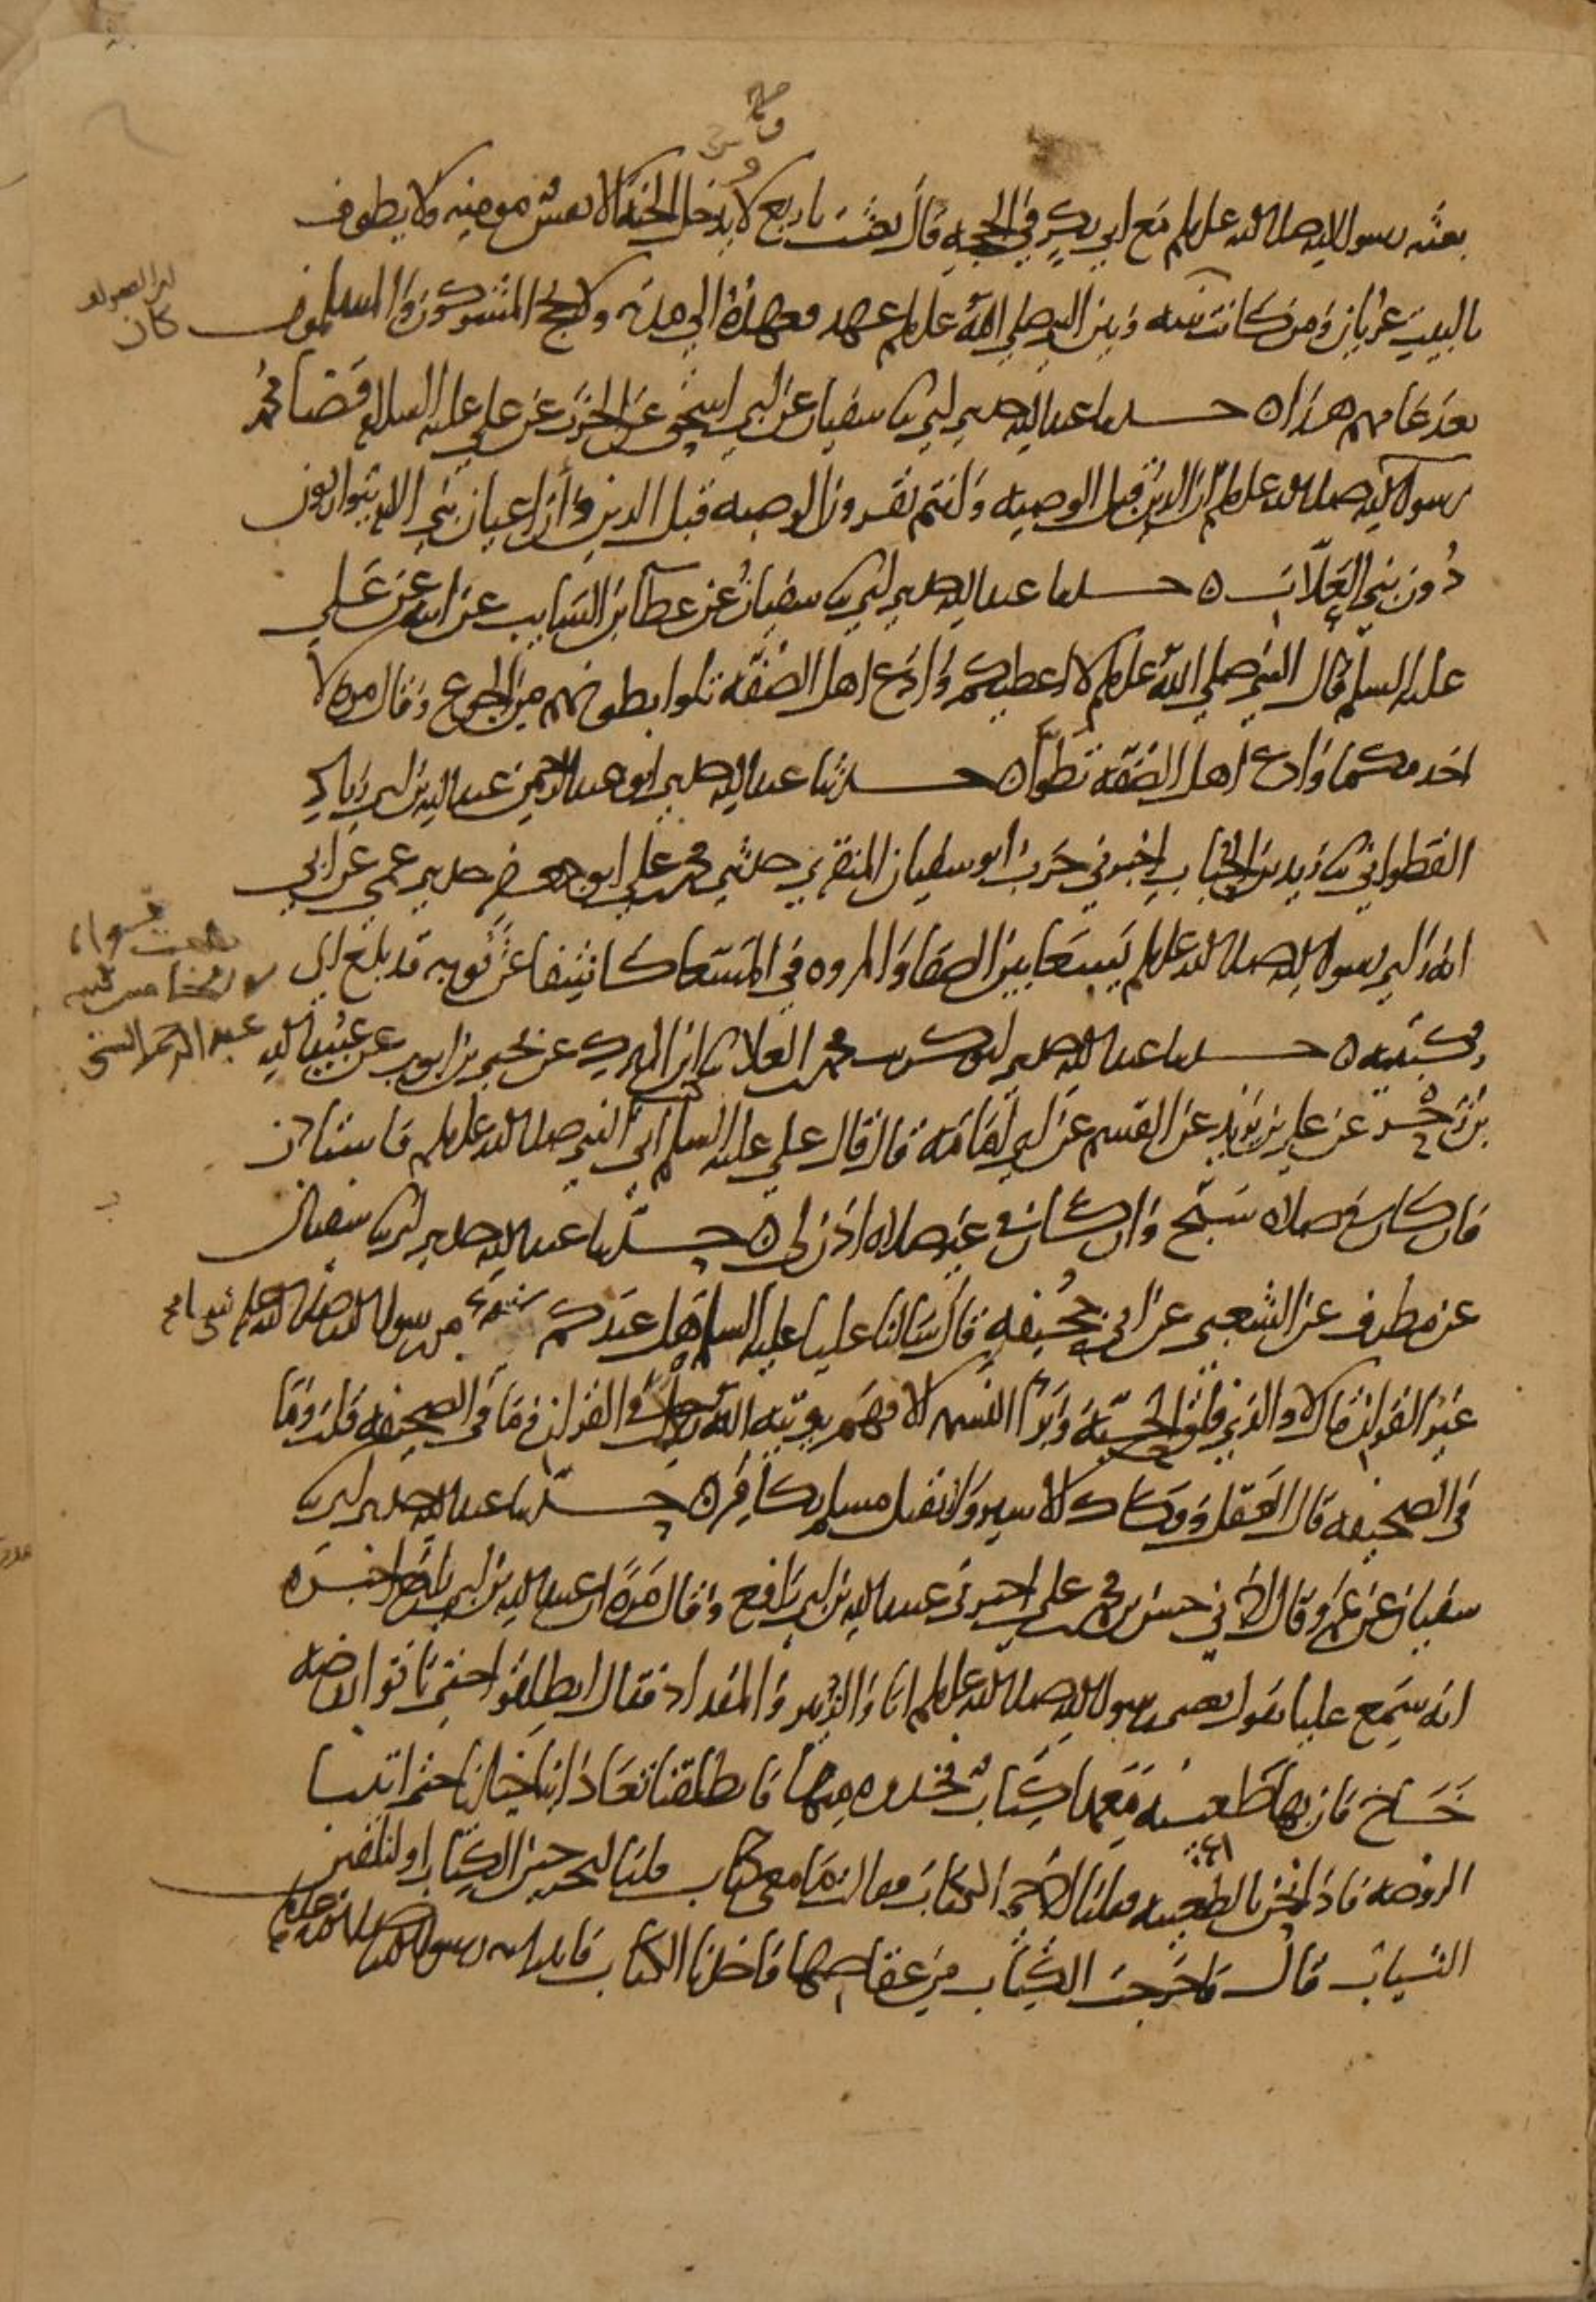 بعثه رسول الله صلى الله عليه وسلم مع ابي بكر في الحجه قال بعثت باربع لا يدخل الجنه الا نفس مومنه ولا يطوف
بالبيت عريان ومن كانت بينه وبين النبي صلى الله عليه وسلم عهد فعهده الى مدته ولا يحج المشركون والمسلمون
بعد عامهم هذا ه حدثنا عبد الله حدثني ابي ثنا سفيان عن ابي اسحق عن الحرث عن علي عليه السلام قضا محمد
رسول الله صلى الله عليه وسلم ان الدين قبل الوصيه وانتم تقرون الوصيه قبل الدين وان اعيان بني الام يتوارثون
دون بني العلات ه حدثنا عبد الله حدثني ابي ثنا سفيان عن عطا بن السايب عن ابيه عن علي
عليه السلم قال النبي صلى الله عليه وسلم لا اعطيكم وادع اهل الصفه تلوا بطونهم من الجوع وقال مره لا
اخدمكما وادع اهل الصفه تطوا ه حدثنا عبد الله حدثني ابو عبد الرحمن عبد الله بن ابي زياد
القطواني ثنا زيد بن الحباب اخبرني حرب ابو سفيان المنقري حدثني محمد بن علي ابو جعفر حدثني عمي عن ابي
انه راى رسول الله صلى الله عليه وسلم يسعا بين الصفا والمروه في المسعا كاشفا عن ثوبه قد بلغ الى
ركبتيه ه حدثنا عبد الله حدثني ابو كريب محمد بن العلا ثنا ابن المبرك عن يحيى بن ايوب عن عبيد الله
بن زحر عن علي بن يزيد عن القسم عن ابي امامه قال قال علي عليه السلم اتي النبي صلى الله عليه وسلم فاستاذن
فان كان في صلاه سبح وان كان في غير صلاه اذن لي ه حدثنا عبد الله حدثني ابي ثنا سفيان
عن مطرف عن الشعبي عن ابي جحيفه قال سالنا عليا عليه السلم هل عندكم من رسول الله صلى الله عليه وسلم شي
غير القران قال لا والذي فلق الحبه وبرا النسمه الا فهم يوتيه الله رجل في القران وما في الصحيفه قلت وما
في الصحيفه قال العقل وفكاك الاسير ولا يقتل مسلم بكافر ه حدثنا عبد الله حدثني ابي ثنا
سفيان عن عمرو قال اخبرني حسن بن محمد بن علي اخبرني عبيد الله بن ابي رافع وقال مره ان عبيد الله بن ابي رافع اخبره
انه سمع عليا يقول بعثني رسول الله صلى الله عليه وسلم انا والزبير والمقداد فقال انطلقوا حتى تاتوا روضه
خاخ فان بها ظعينه معها كتاب فخذوه منها فانطلقنا تعادا بنا خيلنا حتى اتينا
الروضه فاذا نحن بالظعينه فقلنا اخرجي الكتاب فقالت ما معي كتاب قلنا لتخرجن الكتاب او لنلقين
الثياب قال فاخرجت الكتاب من عقاصها فاخذنا الكتاب فاتينا به رسول الله صلى الله عليه وسلم